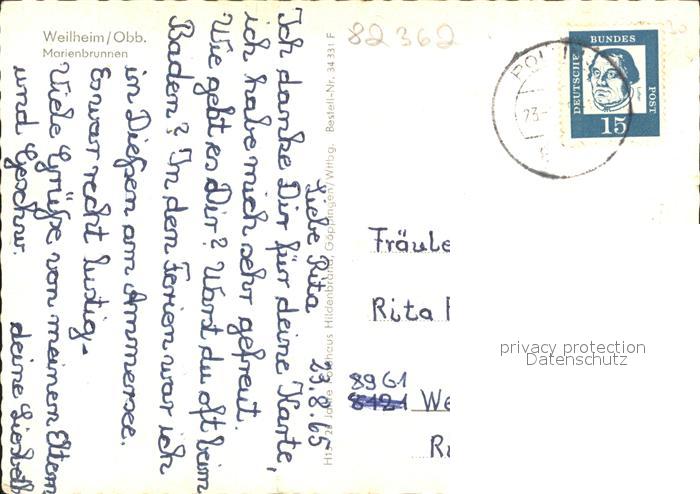 Weilheim/Obb.
Marienbrunnen
82362
DEUTSCHE
BUNDES
POST
15
23-
Liebe Rita 23.8.65
Ich danke Dir für deine Karte,
ich habe mich sehr gefreut.
Wie geht es Dir? Warst du oft beim
Baden? In dem Ferien war ich
in Dießen am Ammersee.
Es war recht lustig.
Viele Grüße von meinem Eltern
und Geschw. deine
Bestell-Nr. 34 331 F
Hildenbrand, Göppingen/Wttbg.
Fräule
Rita
8961
8121 We
privacy protection
Datenschutz